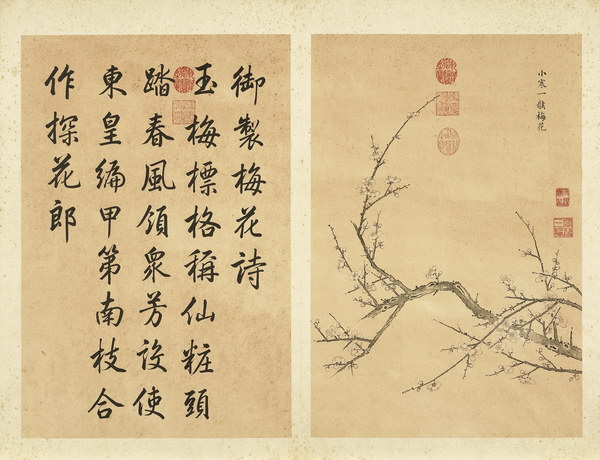 御製梅花詩
玉梅標格稱仙粧頭
踏春風領衆芳設使
東皇編甲第南枝合
作探花郎
小寒一候梅花